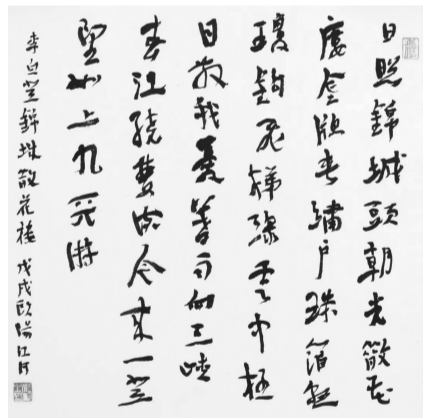 日照錦城頭朝光散花
樓金牕夾繡户珠箔懸
瓊鉤飛梯綠雲中極
目散我憂暮雨向三峽
春江繞雙流今來一登
望如上九天游
李白登錦城散花樓 戊戌歐陽江河